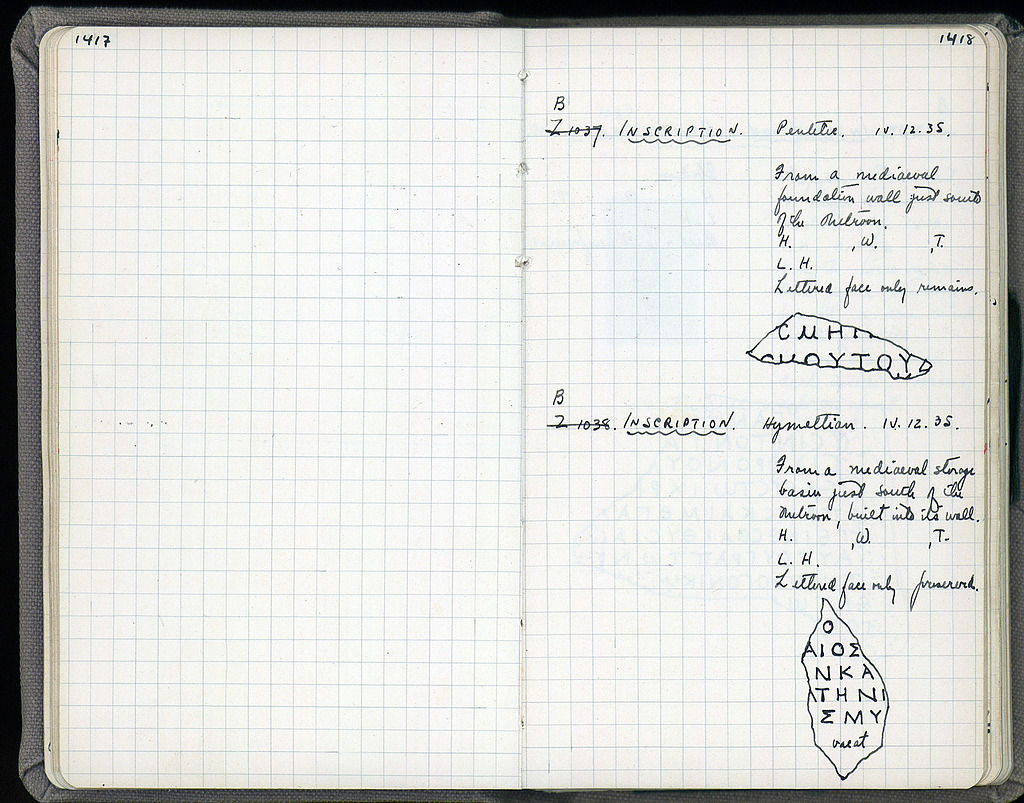 1417
1418
B
Z 1037. INSCRIPTION. Pentelic. IV. 12. 35.
From a mediaeval
foundation wall just south
of the Metroon.
H. , W. , T.
L. H.
Lettered face only remains.
ϹΜΗΠ
ΟΥΤΟΥ
B
Z 1038. INSCRIPTION. Hymettian. IV. 12. 35.
From a mediaeval storage
basin just south of the
Metroon, built into its wall.
H. , W. , T.
L. H.
Lettered face only preserved.
Ο
ΑΙΟΣ
ΝΚΑ
ΤΗΝΙ
ΣΜΥ
vacat